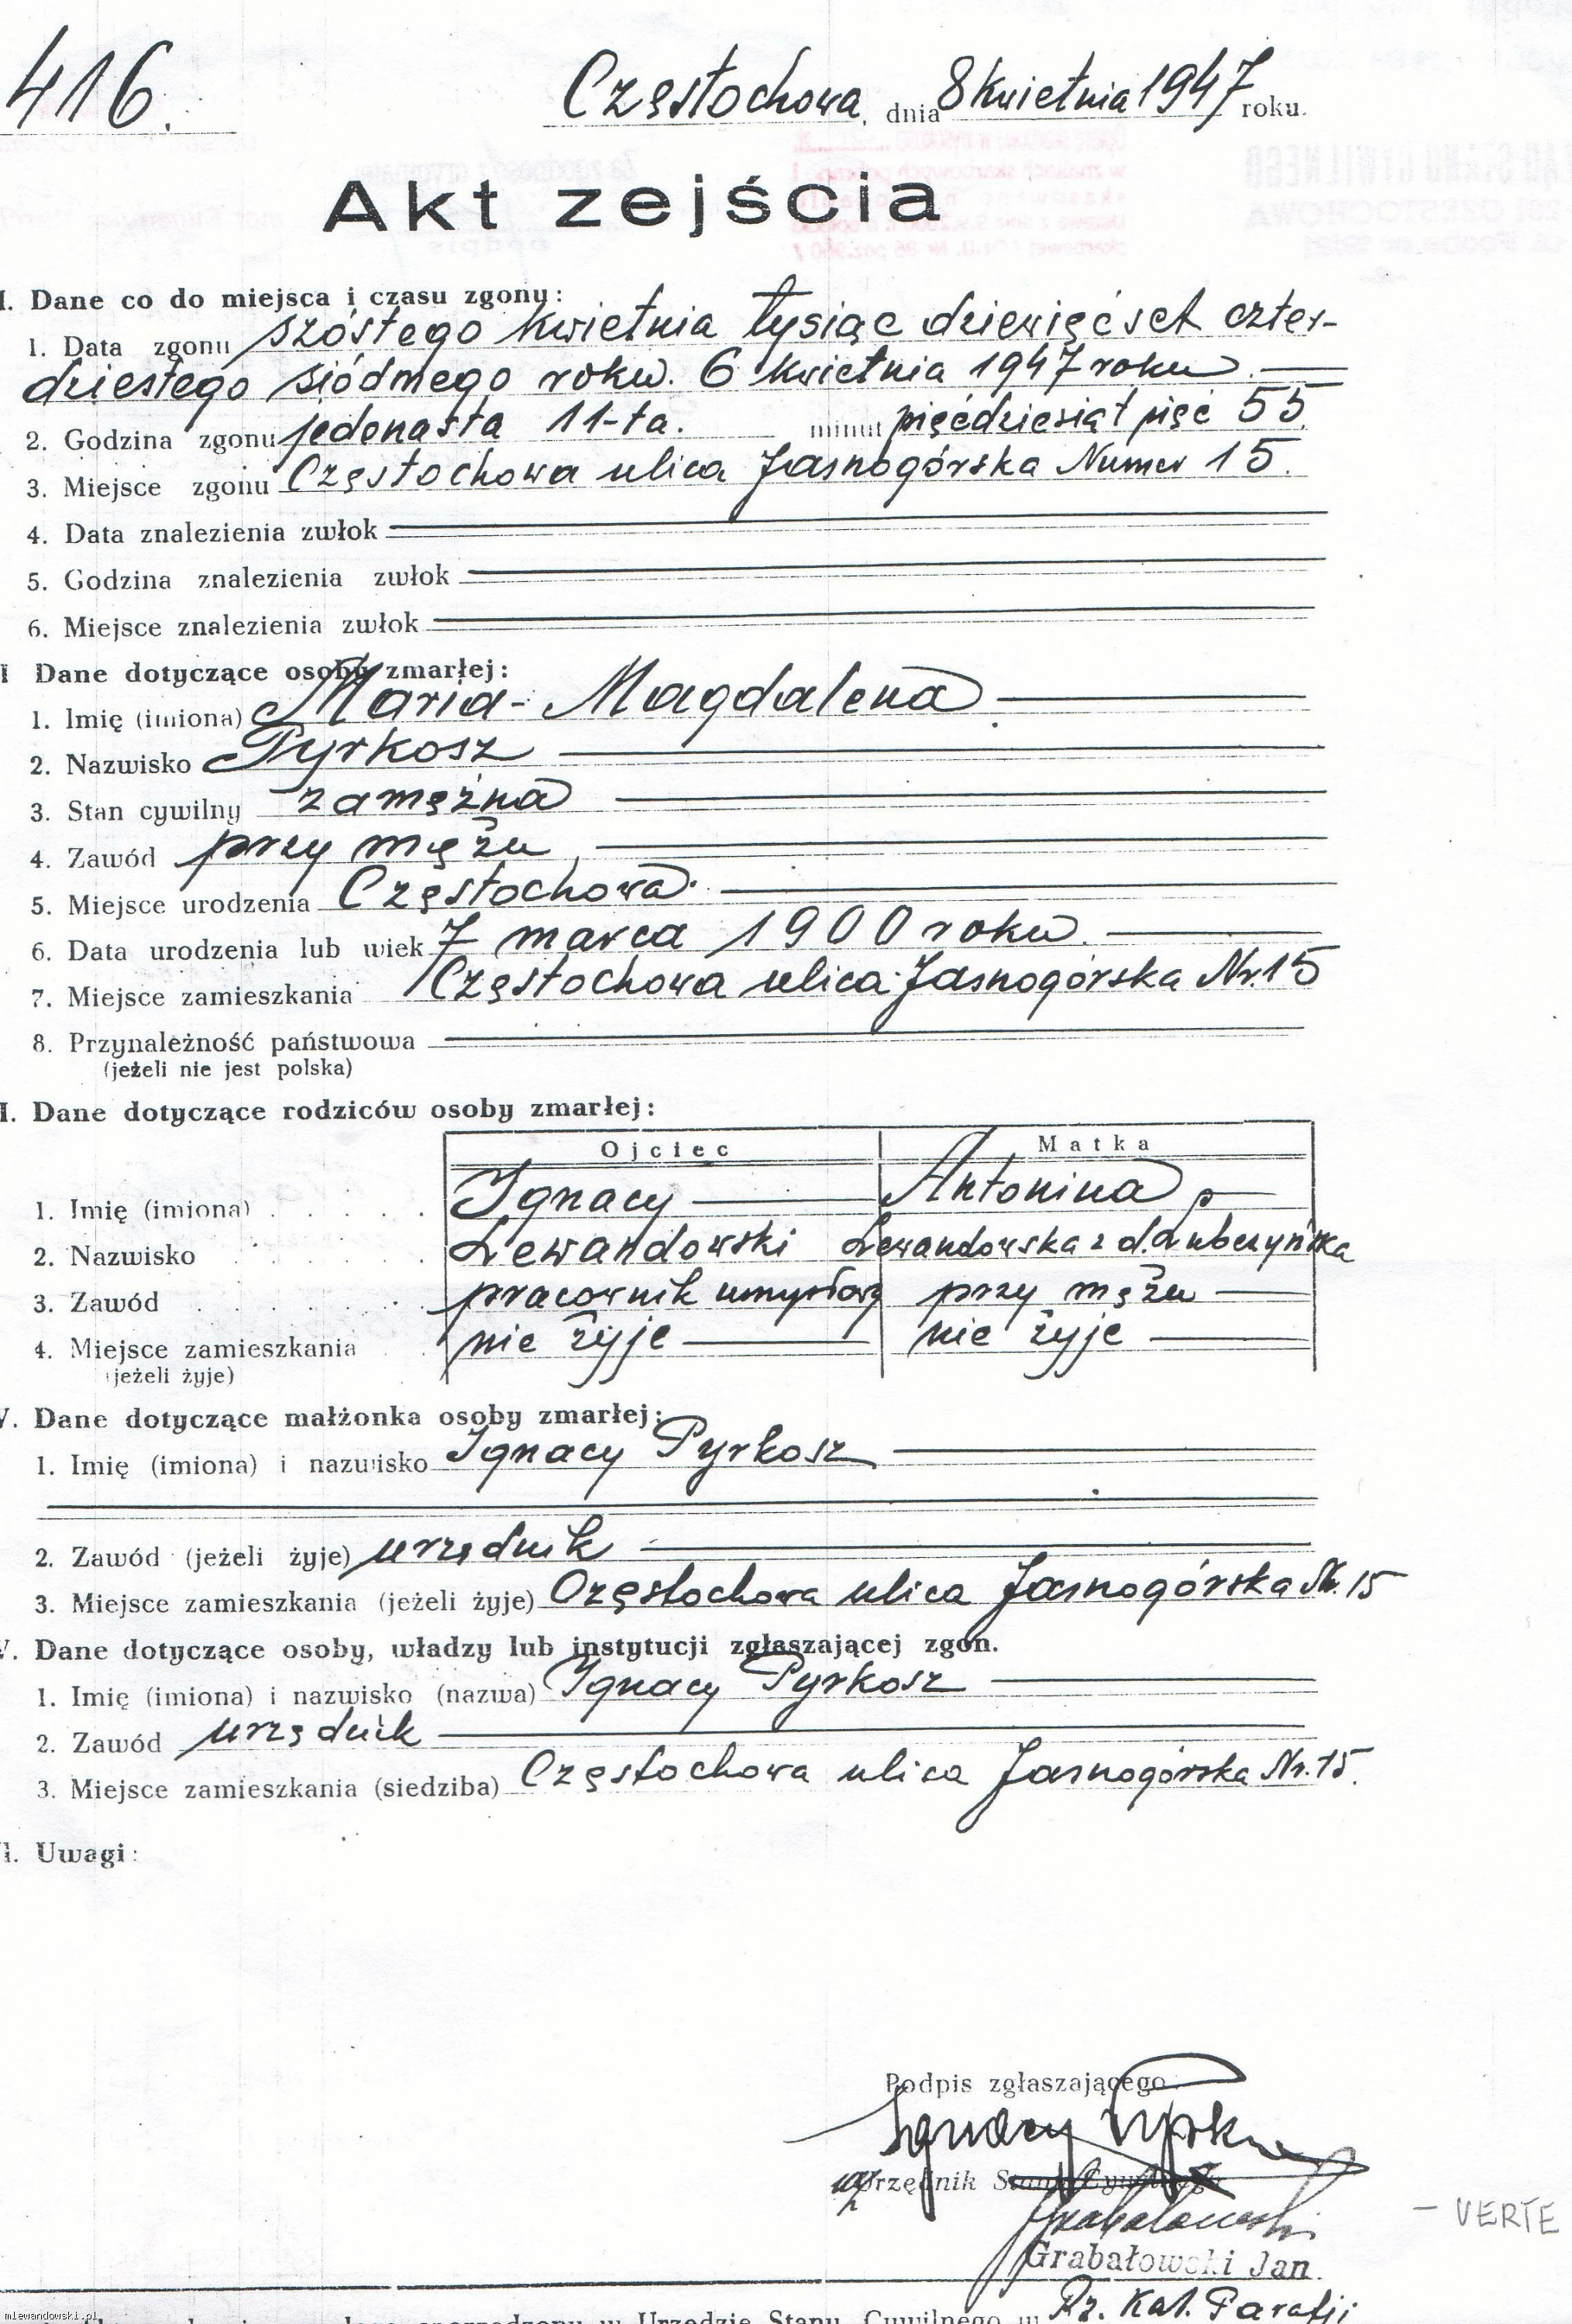 416.
Częstochowa, dnia 8 Kwietnia 1947 roku.
Akt zejścia
I. Dane co do miejsca i czasu zgonu:
1. Data zgonu szóstego kwietnia tysiąc dziewięćset czter-
dziestego siódmego roku. 6 kwietnia 1947 roku.
2. Godzina zgonu jedenasta 11-ta. minut pięćdziesiąt pięć 55.
3. Miejsce zgonu Częstochowa ulica Jasnogórska Numer 15.
4. Data znalezienia zwłok
5. Godzina znalezienia zwłok
6. Miejsce znalezienia zwłok
I Dane dotyczące osoby zmarłej:
1. Imię (imiona) Maria-Magdalena
2. Nazwisko Pyrkosz
3. Stan cywilny zamężna
4. Zawód przy mężu
5. Miejsce urodzenia Częstochowa
6. Data urodzenia lub wiek 7 marca 1900 roku.
7. Miejsce zamieszkania Częstochowa ulica Jasnogórska Nr. 15
8. Przynależność państwowa
(jeżeli nie jest polska)
I. Dane dotyczące rodziców osoby zmarłej:
Ojciec Matka
1. Imię (imiona) Ignacy Antonina
2. Nazwisko Lewandowski Lewandowska z d. Lubczyńska
3. Zawód pracownik umysłowy przy mężu
4. Miejsce zamieszkania nie żyje nie żyje
(jeżeli żyje)
V. Dane dotyczące małżonka osoby zmarłej:
1. Imię (imiona) i nazwisko Ignacy Pyrkosz
2. Zawód (jeżeli żyje) urzędnik
3. Miejsce zamieszkania (jeżeli żyje) Częstochowa ulica Jasnogórska Nr. 15
V. Dane dotyczące osoby, władzy lub instytucji zgłaszającej zgon.
1. Imię (imiona) i nazwisko (nazwa) Ignacy Pyrkosz
2. Zawód urzędnik
3. Miejsce zamieszkania (siedziba) Częstochowa ulica Jasnogórska Nr. 15.
I. Uwagi:
Podpis zgłaszającego
Ignacy Pyrkosz
Urzędnik Stanu Cywilnego
Grabałowski
Grabałowski Jan
– VERTE
Rz. Kat. Parafji
w Urzędzie Stanu Cywilnego w
mlewandowski.pl